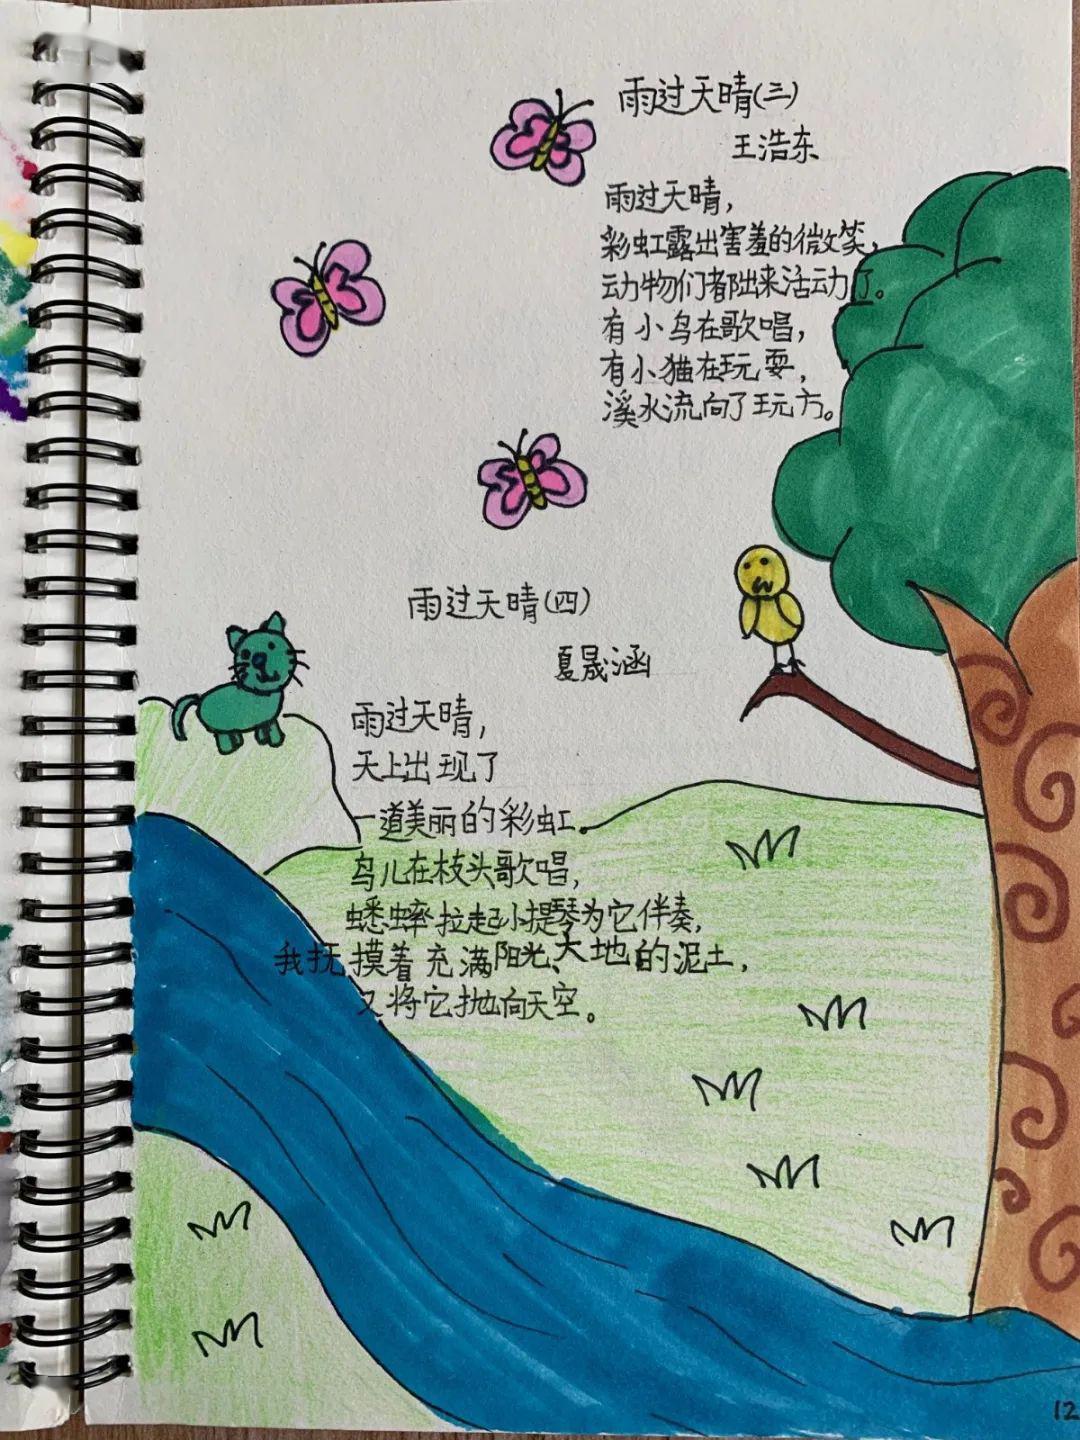 雨过天晴(三)
王浩东
雨过天晴，
彩虹露出害羞的微笑，
动物们都出来活动了。
有小鸟在歌唱，
有小猫在玩耍，
溪水流向了玩方。
雨过天晴(四)
夏晟涵
雨过天晴，
天上出现了
一道美丽的彩虹。
鸟儿在枝头歌唱，
蟋蟀拉起小提琴为它伴奏，
我抚摸着充满阳光、大地的泥土，
又将它抛向天空。
12